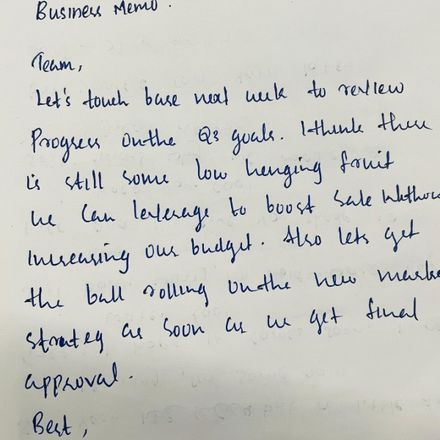 Business Memo.
Team,
Let's touch base next week to review
Progress on the Q3 goals. I think there
is still some low hanging fruit
we can leverage to boost sale withou
increasing our budget. Also lets get
the ball rolling on the new marke
strategy as soon as we get final
approval.
Best,